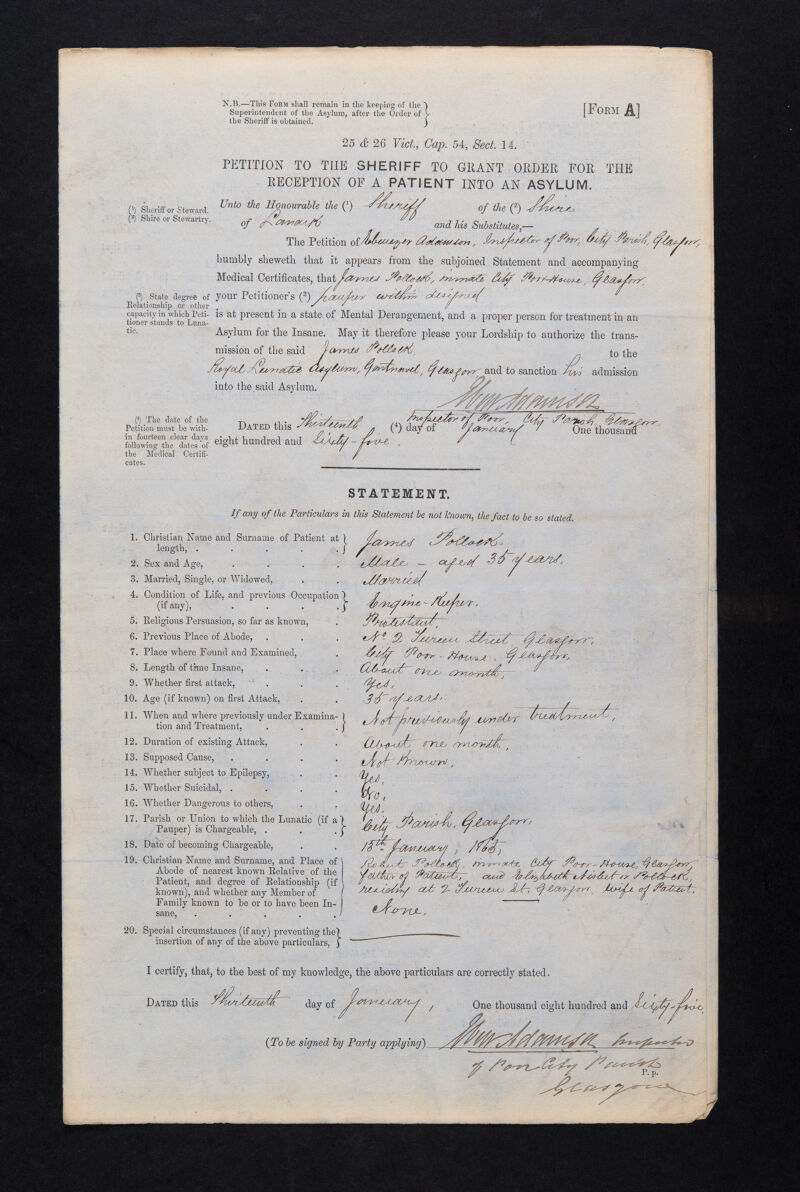 N.B.—This Form shall remain in the keeping of the
Superintendent of the Asylum, after the Order of
the Sheriff is obtained.
[Form A]
25 & 26 Vict., Cap. 54, Sect. 14.
PETITION TO THE SHERIFF TO GRANT ORDER FOR THE
RECEPTION OF A PATIENT INTO AN ASYLUM.
(¹) Sheriff or Steward.
(²) Shire or Stewartry.
Unto the Honourable the (¹) Sheriff of the (²) Shire
of Lanark and his Substitutes,—
The Petition of Ebenezer Adamson, Inspector of Poor, City Parish, Glasgow,
humbly sheweth that it appears from the subjoined Statement and accompanying
Medical Certificates, that James Pollock, inmate City Poor-House, Glasgow.
(³) State degree of
Relationship or other
capacity in which Peti-
tioner stands to Luna-
tic.
your Petitioner's (³) pauper within designed
is at present in a state of Mental Derangement, and a proper person for treatment in an
Asylum for the Insane. May it therefore please your Lordship to authorize the trans-
mission of the said James Pollock to the
Royal Lunatic Asylum, Gartnavel, Glasgow and to sanction his admission
into the said Asylum.
Adamson
Inspector of Poor, City Parish, Glasgow.
(⁴) The date of the
Petition must be with-
in fourteen clear days
following the dates of
the Medical Certifi-
cates.
Dated this Thirteenth (⁴) day of January One thousand
eight hundred and Sixty-five.
STATEMENT.
If any of the Particulars in this Statement be not known, the fact to be so stated.
1. Christian Name and Surname of Patient at
length, . . . . . James Pollock.
2. Sex and Age, . . . . Male – aged 35 years.
3. Married, Single, or Widowed, . . Married
4. Condition of Life, and previous Occupation
(if any), . . . . Engine-Keeper.
5. Religious Persuasion, so far as known, . Protestant.
6. Previous Place of Abode, . . . No. 2 Tureen Street, Glasgow.
7. Place where Found and Examined, . City Poor-House, Glasgow.
8. Length of time Insane, . . . About one month.
9. Whether first attack, . . . Yes.
10. Age (if known) on first Attack, . . 35 years.
11. When and where previously under Examina-
tion and Treatment, . . . . Not previously under treatment.
12. Duration of existing Attack, . . About one month.
13. Supposed Cause, . . . . Not Known.
14. Whether subject to Epilepsy, . . Yes.
15. Whether Suicidal, . . . . No.
16. Whether Dangerous to others, . . Yes.
17. Parish or Union to which the Lunatic (if a
Pauper) is Chargeable, . . . City Parish, Glasgow.
18. Date of becoming Chargeable, . . 13th January, 1865.
19. Christian Name and Surname, and Place of
Abode of nearest known Relative of the
Patient, and degree of Relationship (if
known), and whether any Member of
Family known to be or to have been In-
sane, . . . . . .
Robert Pollock, inmate City Poor-House, Glasgow,
father of Patient, and Elizabeth Nisbet or Pollock,
residing at 2 Tureen St. Glasgow, wife of Patient.
None.
20. Special circumstances (if any) preventing the
insertion of any of the above particulars,
I certify, that, to the best of my knowledge, the above particulars are correctly stated.
Dated this Thirteenth day of January, One thousand eight hundred and Sixty-five.
(To be signed by Party applying) Adamson Inspector
of Poor City Parish
P. p.
Glasgow